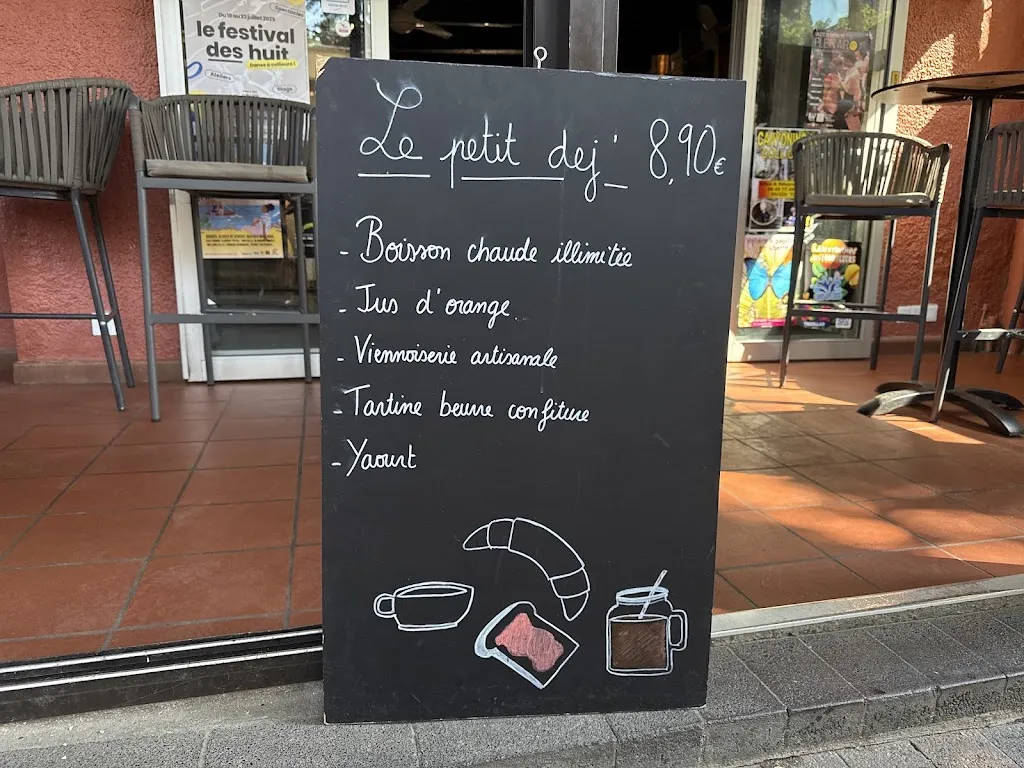 Du 19 au 23 juillet 2025
le festival
des huit
Ateliers
Le petit dej' 8,90€
- Boisson chaude illimitée
- Jus d'orange
- Viennoiserie artisanale
- Tartine beurre confiture
- Yaourt